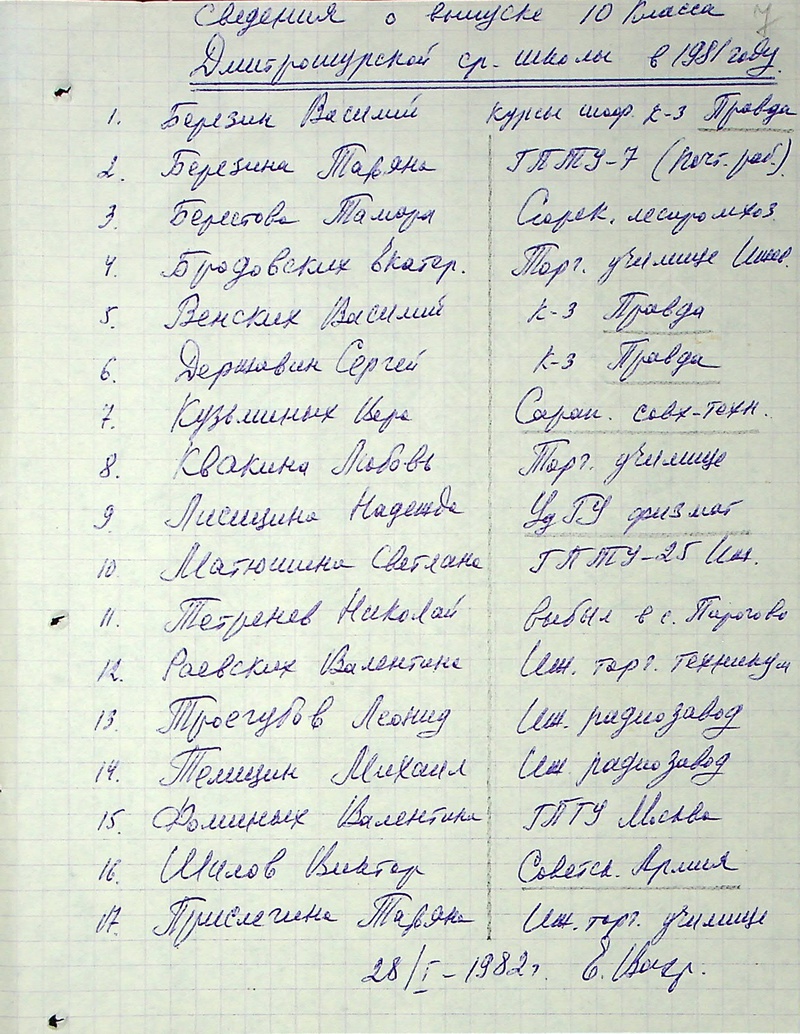 7
Сведения о выпуске 10 класса
Дмитрошурской ср. школы в 1981 году.
1. Березин Василий курсы шоф. к-з Правда
2. Березина Татьяна ГПТУ-7 (почт. раб.)
3. Берестова Тамара Сюрек. леспромхоз
4. Бродовских Екатер. Торг. училище Ижев.
5. Венских Василий к-з Правда
6. Державин Сергей к-з Правда
7. Кузьминых Вера Сарап. совх-техн.
8. Квакина Любовь Торг. училище
9 Лисицина Надежда УдГУ физмат
10. Матюшина Светлана ГПТУ-25 Иж.
11. Тетенев Николай выбыл в с.
12. Раевских Валентина Иж. торг. техникум
13. Троегубов Леонид Иж. радиозавод
14. Телицин Михаил Иж радиозавод
15. Фоминых Валентина ГПТУ Москва
16. Шилов Виктор Советск. Армия
17. Прислегина Татьяна Иж. торг. училище
28/I-1982г.